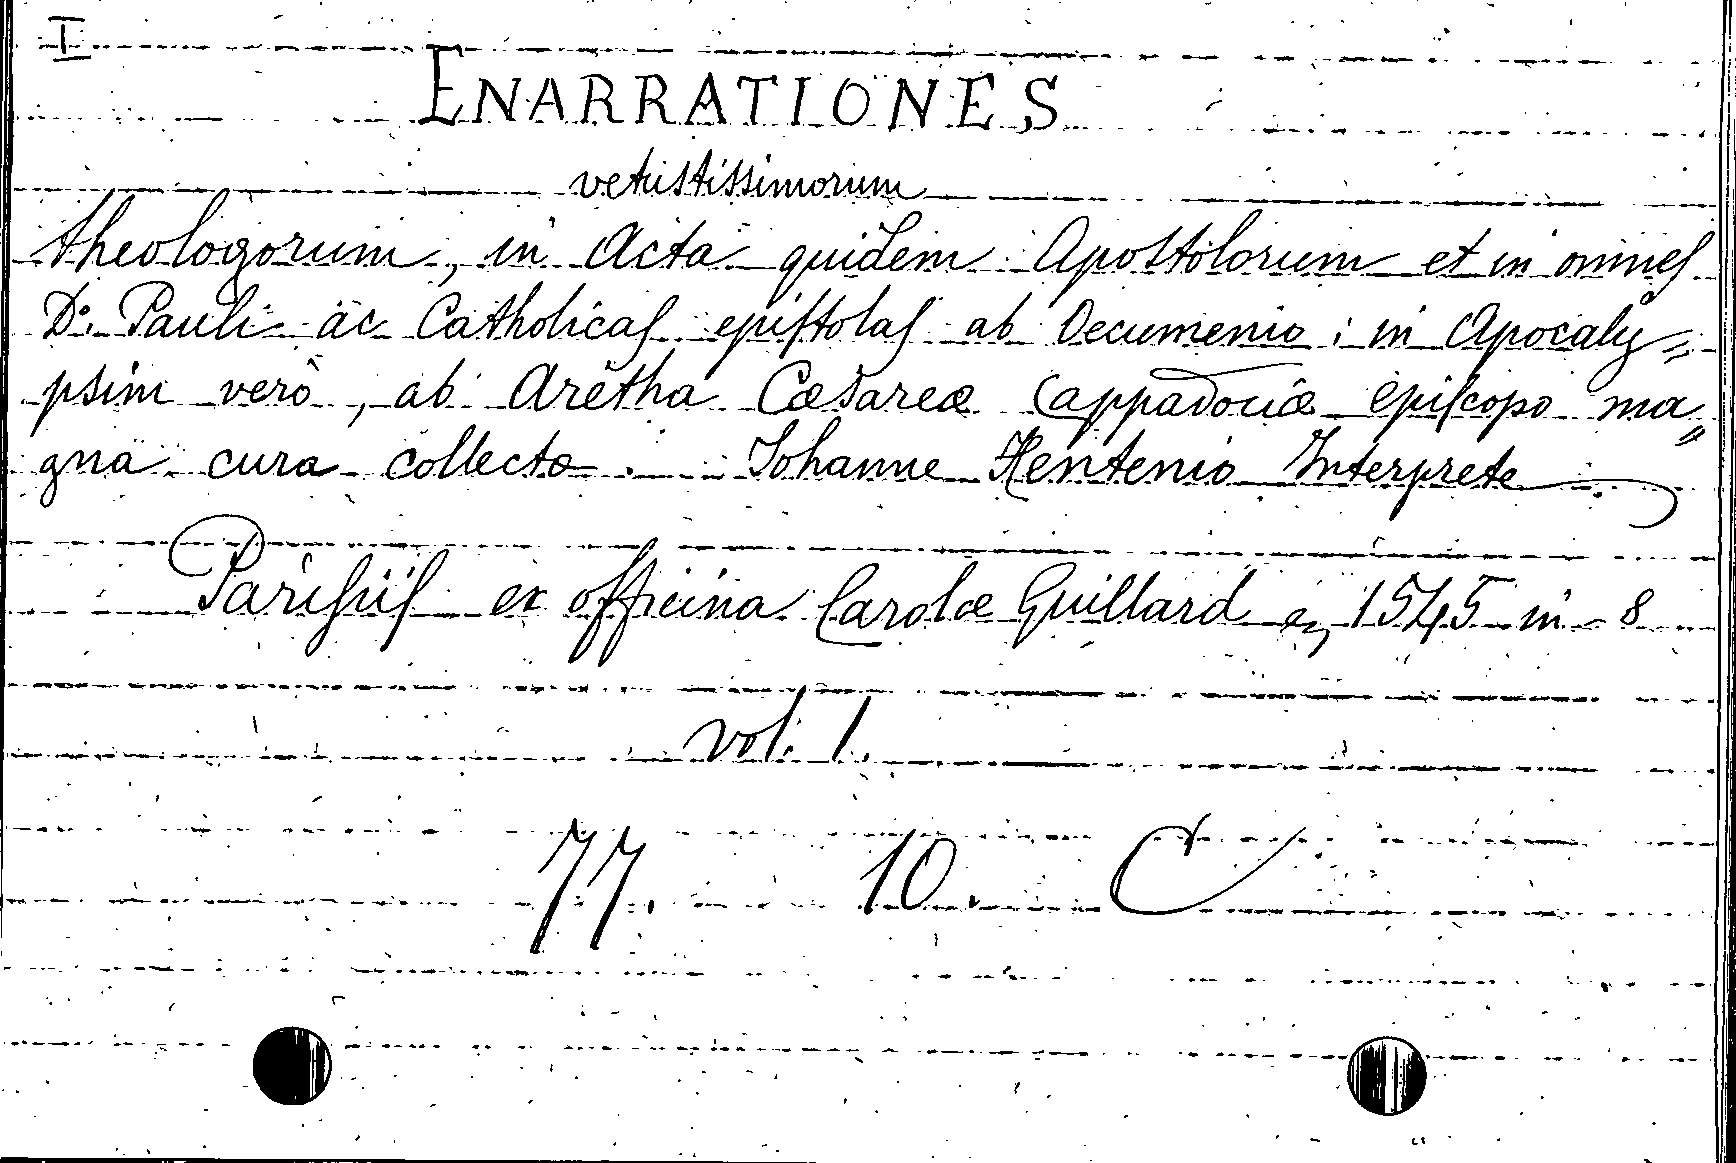 I
ENARRATIONES
vetustissimorum
theologorum, in Acta quidem Apostolorum et in omnes
D. Pauli ac Catholicas epistolas ab Oecumenio ; in Apocaly=
psim verò, ab Aretha Cæsareæ Cappadociæ episcopo ma=
gna cura collectæ. Iohanne Hentenio Interprete
Parisiis ex officina Carolæ Guillard 1545 in-8
vol. 1.
77. 10. C